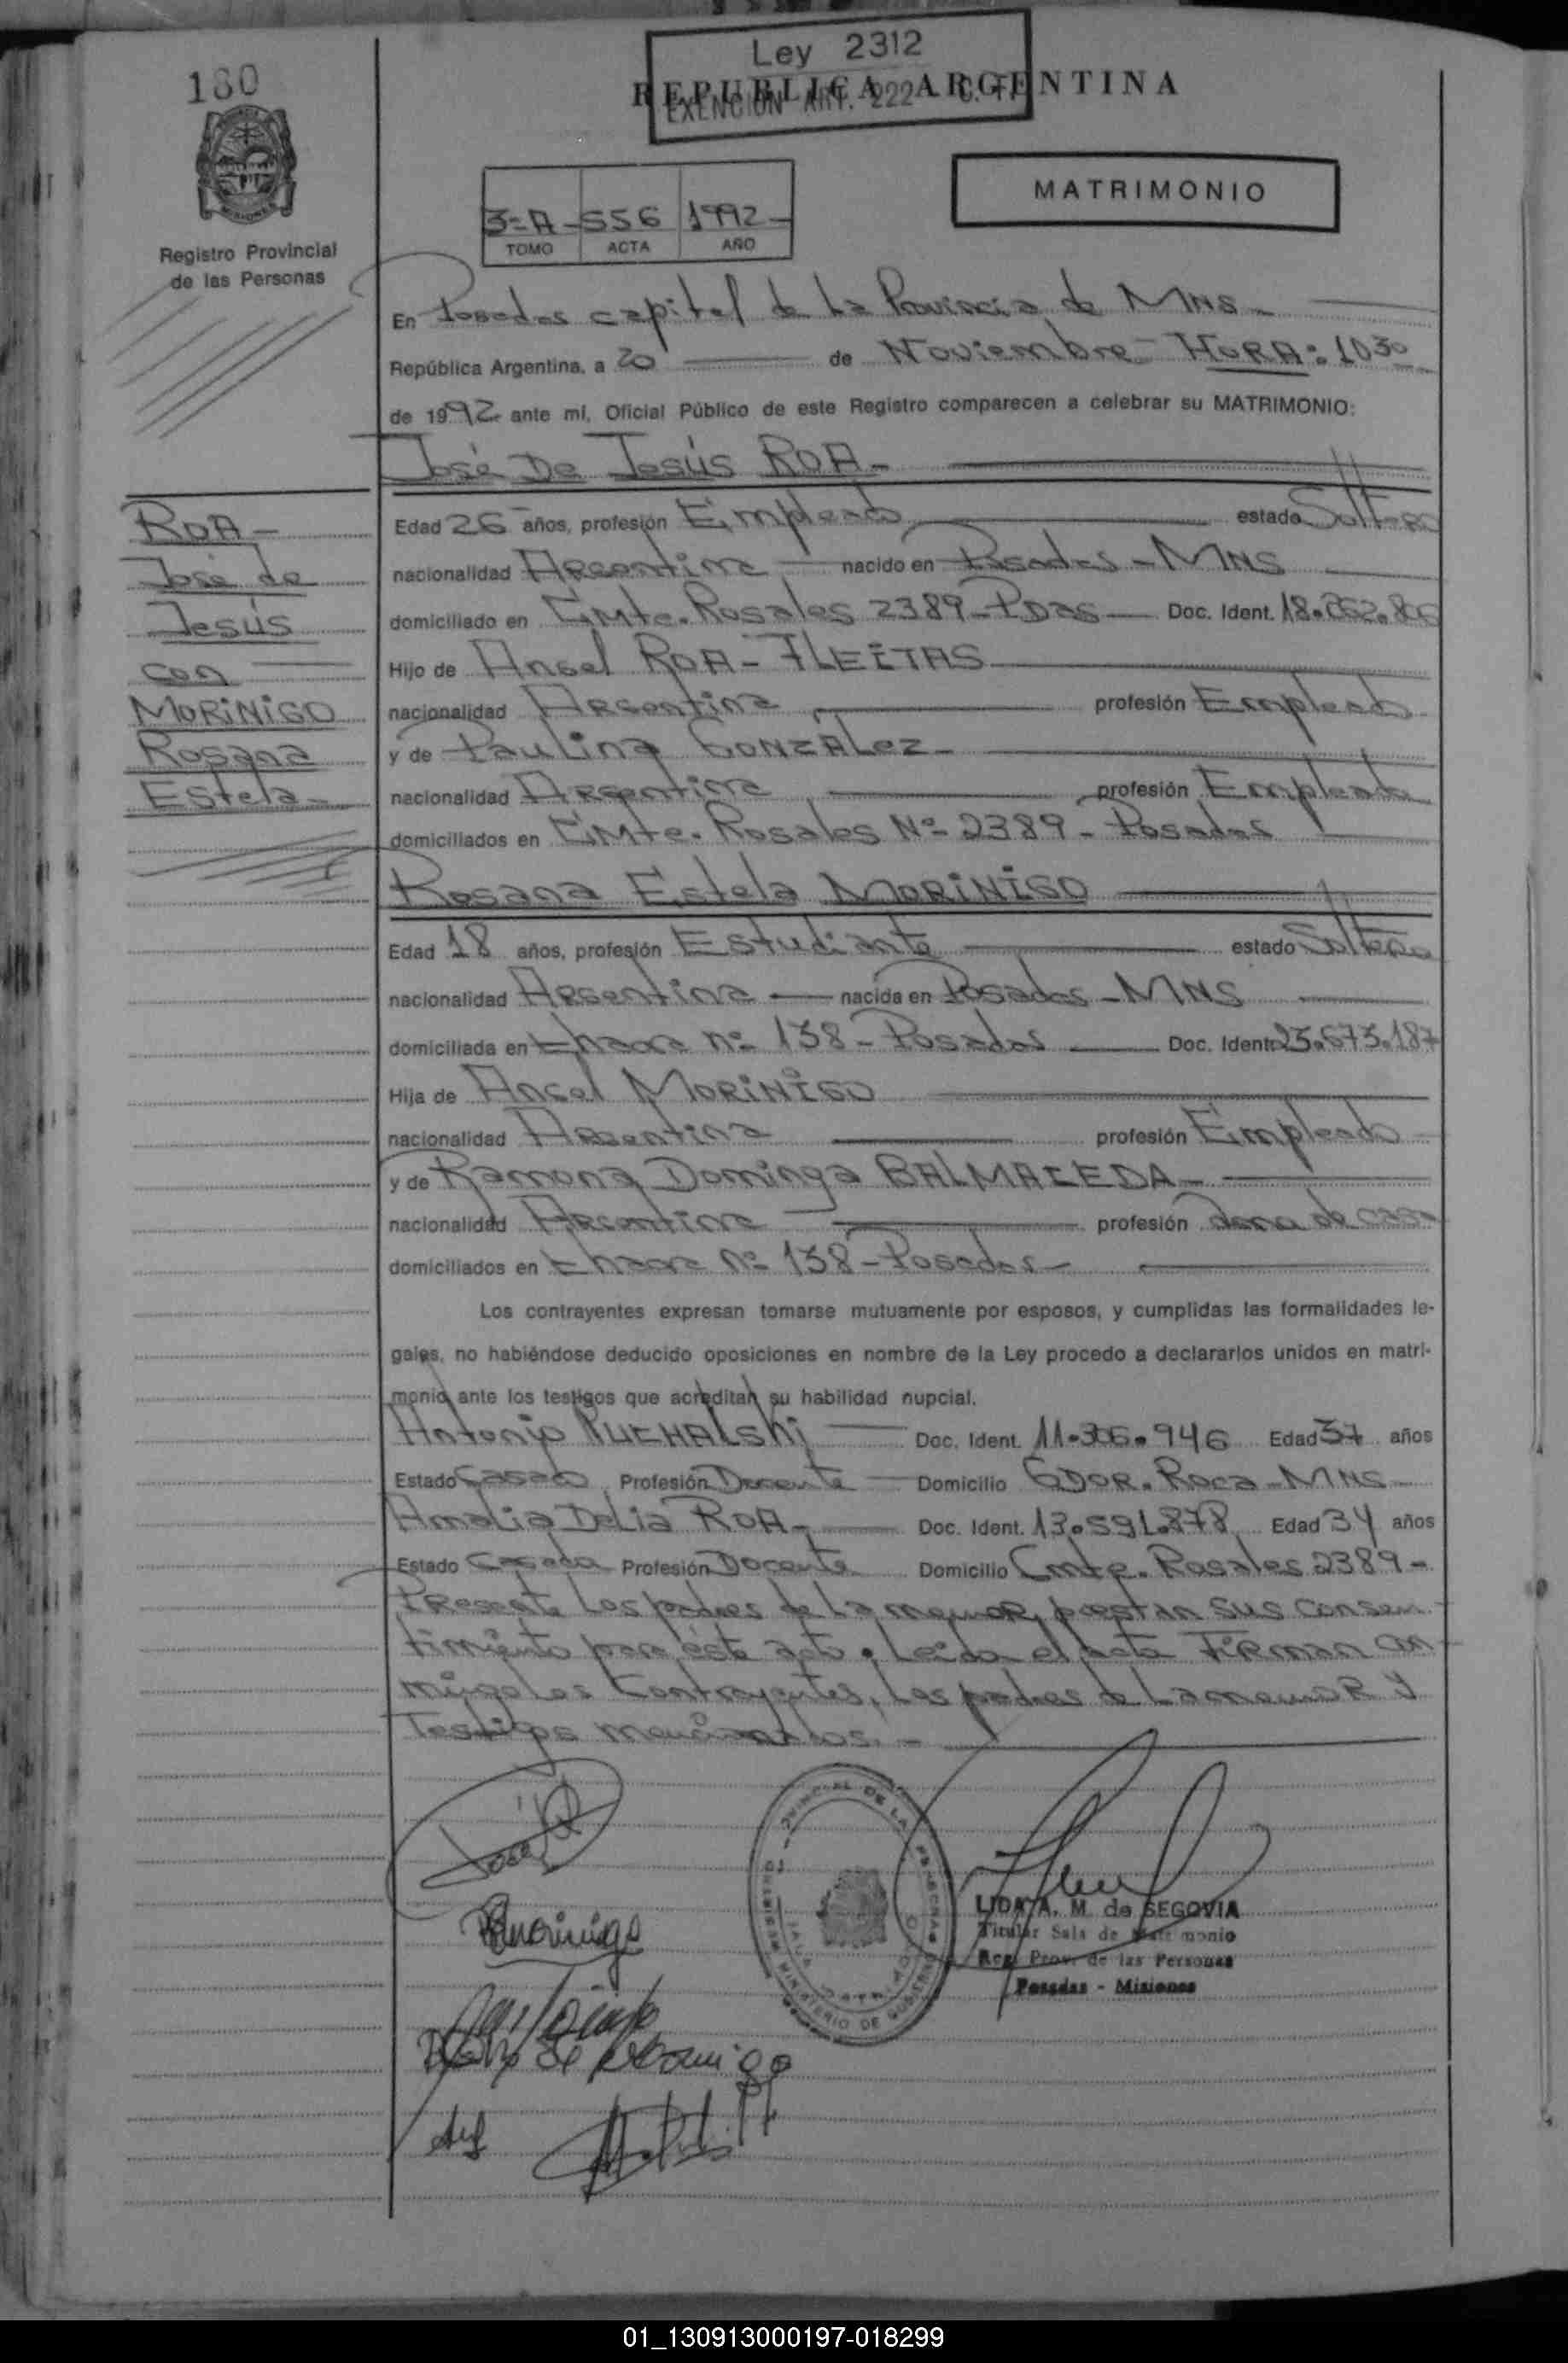 180
Ley 2312
REPUBLICA ARGENTINA
EXENCION ART. 222
MATRIMONIO
3-A- 556 1992-
TOMO ACTA AÑO
Registro Provincial
de las Personas
En Posadas capital de La Provincia de MNS -
República Argentina, a 20 de Noviembre - HORA: 1030
de 1992 ante mi, Oficial Público de este Registro comparecen a celebrar su MATRIMONIO:
José De Jesús ROA -
ROA -
José de
Jesús
con
MORINIGO
Rosana
Estela -
Edad 26 años, profesión Empleado estado Soltero
nacionalidad Argentina nacido en Posadas - MNS
domiciliado en Cmte. Rosales 2389 - Pdas Doc. Ident. 18.
Hijo de Angel ROA - FLEITAS
nacionalidad Argentina profesión Empleado
y de Paulina GONZALEZ -
nacionalidad Argentina profesión Empleada
domiciliados en Cmte. Rosales Nº 2389 - Posadas
Rosana Estela MORINIGO
Edad 18 años, profesión Estudiante estado Soltera
nacionalidad Argentina nacida en Posadas - MNS
domiciliada en Chacra nº 138 - Posados Doc. Ident. 23.673.187
Hija de Angel MORINIGO
nacionalidad Argentina profesión Empleado
y de Ramona Dominga BALMACEDA -
nacionalidad Argentina profesión de casa
domiciliados en Chacra nº 138 - Posadas -
Los contrayentes expresan tomarse mutuamente por esposos, y cumplidas las formalidades le-
gales, no habiéndose deducido oposiciones en nombre de la Ley procedo a declararlos unidos en matri-
monio ante los testigos que acreditan su habilidad nupcial.
Antonio PUCHALSKi Doc. Ident. 11.306.946 Edad 37 años
Estado Casado Profesión Docente Domicilio GDOR. Roca - MNS
Amalia Delia ROA - Doc. Ident. 13.591.878 Edad 34 años
Estado Casada Profesión Docente Domicilio Cmte. Rosales 2389 -
Presente Los padres de La menor, prestan sus consen-
timiento para éste acto. Leida el acta Firman con-
migo los Contrayentes, Los padres de La menor y
Testigos mencionados. -
José
RMorinigo
LIDA A. M. de SEGOVIA
Titular Sala de Matrimonio
Reg. Prov. de las Personas
Posadas - Misiones
01_130913000197-018299